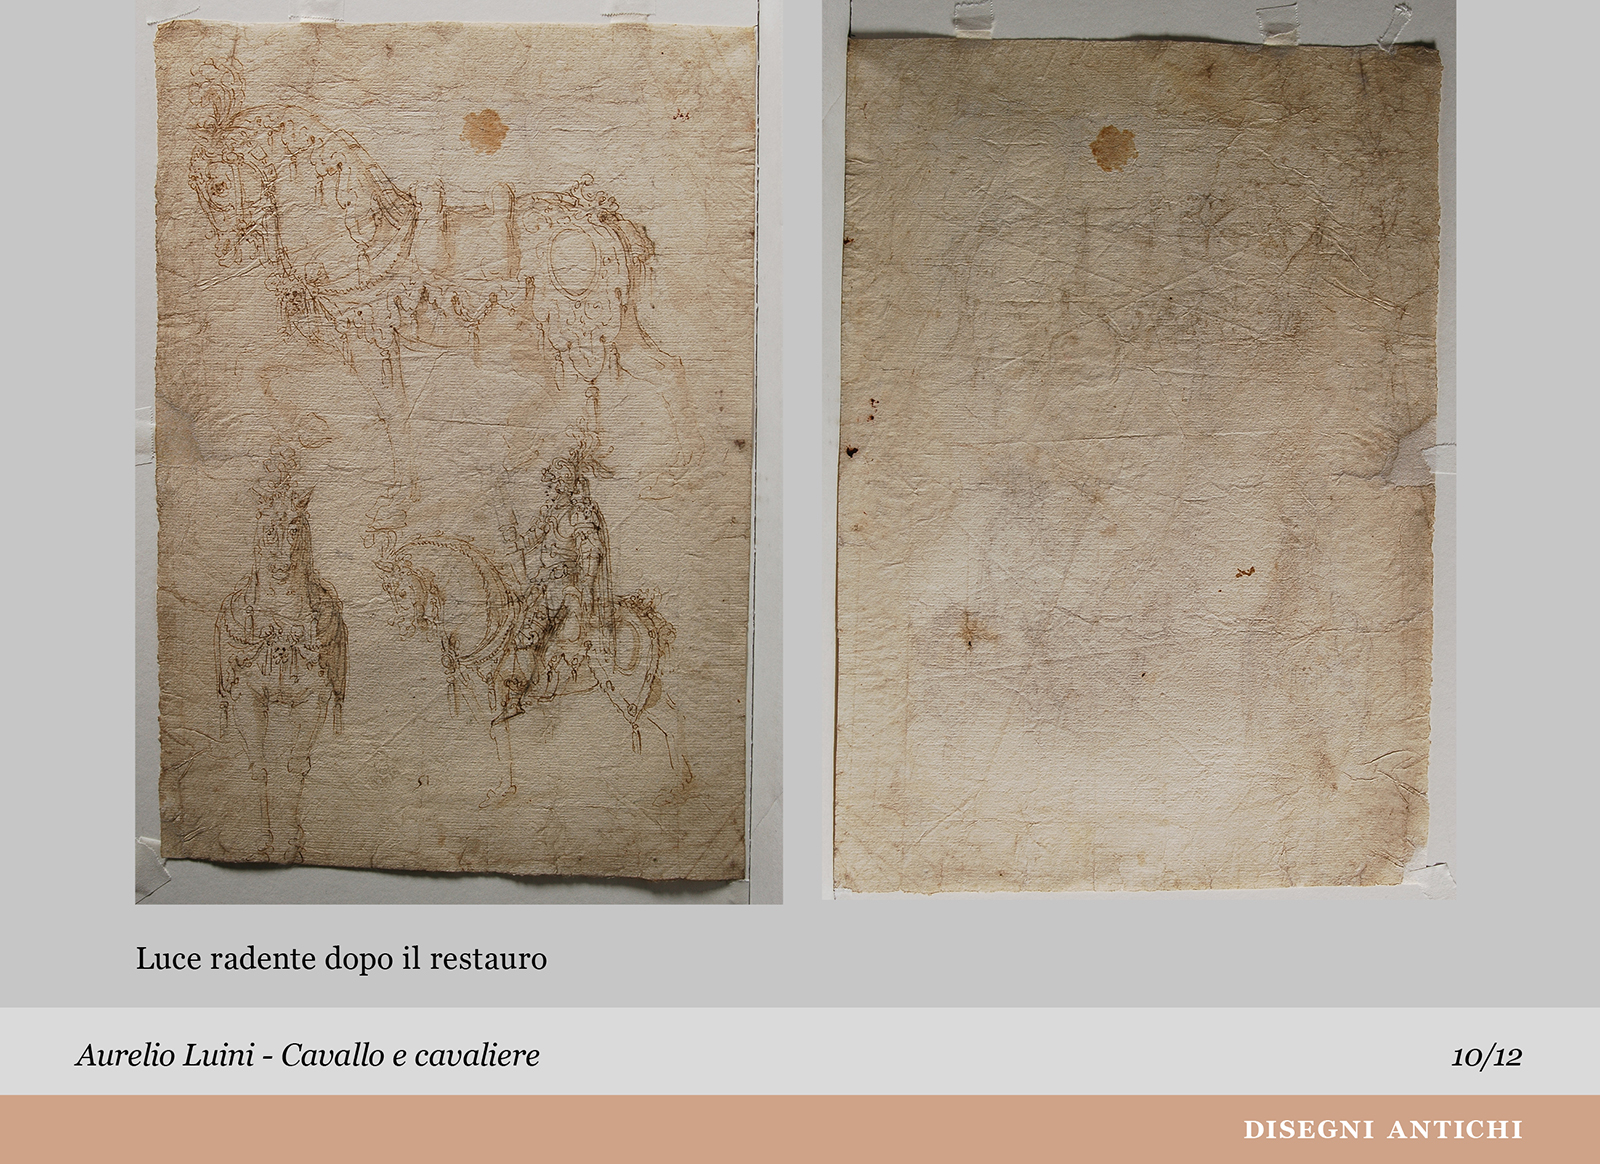 Luce radente dopo il restauro
Aurelio Luini - Cavallo e cavaliere
10/12
DISEGNI ANTICHI